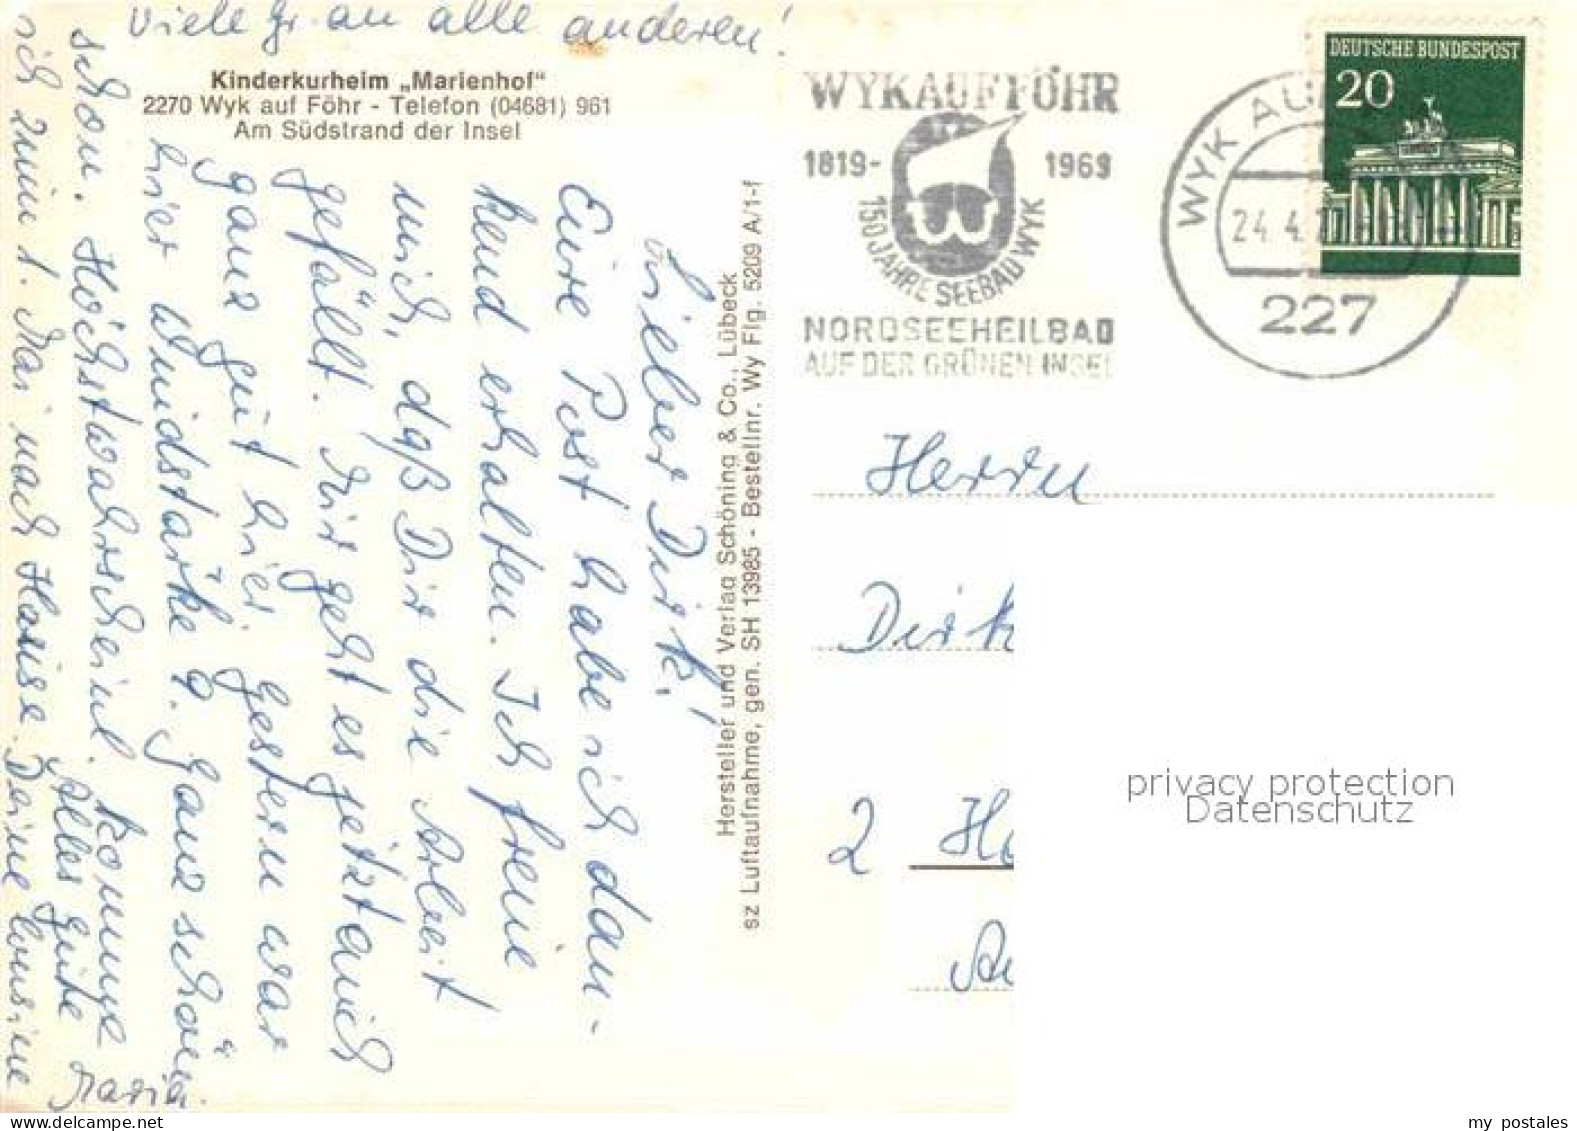 Viele Gr. an alle anderen!
Kinderkurheim „Marienhof“
2270 Wyk auf Föhr - Telefon (04681) 961
Am Südstrand der Insel
Lieber Dirk!
Eure Post habe ich dan-
kend erhalten. Ich freue
mich, daß Dir die Arbeit
gefällt. Mir geht es jetzt auch
ganz gut hier. Gestern war
hier Windstärke 9. Ganz schön
schon. Höchstwahrscheinl. komme
ich zum 1. Mai nach Hause.
Alles Gute
Deine Cousine
Maria.
Hersteller und Verlag Schöning & Co., Lübeck
sz Luftaufnahme, gen. SH 13985 - Bestellnr. Wy Flg. 5209 A/1-f
WYK AUF FÖHR
1819- 1969
150 JAHRE SEEBAD WYK
NORDSEEHEILBAD
AUF DER GRÜNEN INSEL
WYK AU
24.4.
227
DEUTSCHE BUNDESPOST
20
Herrn
Dirk
2 H
privacy protection
Datenschutz
my postales